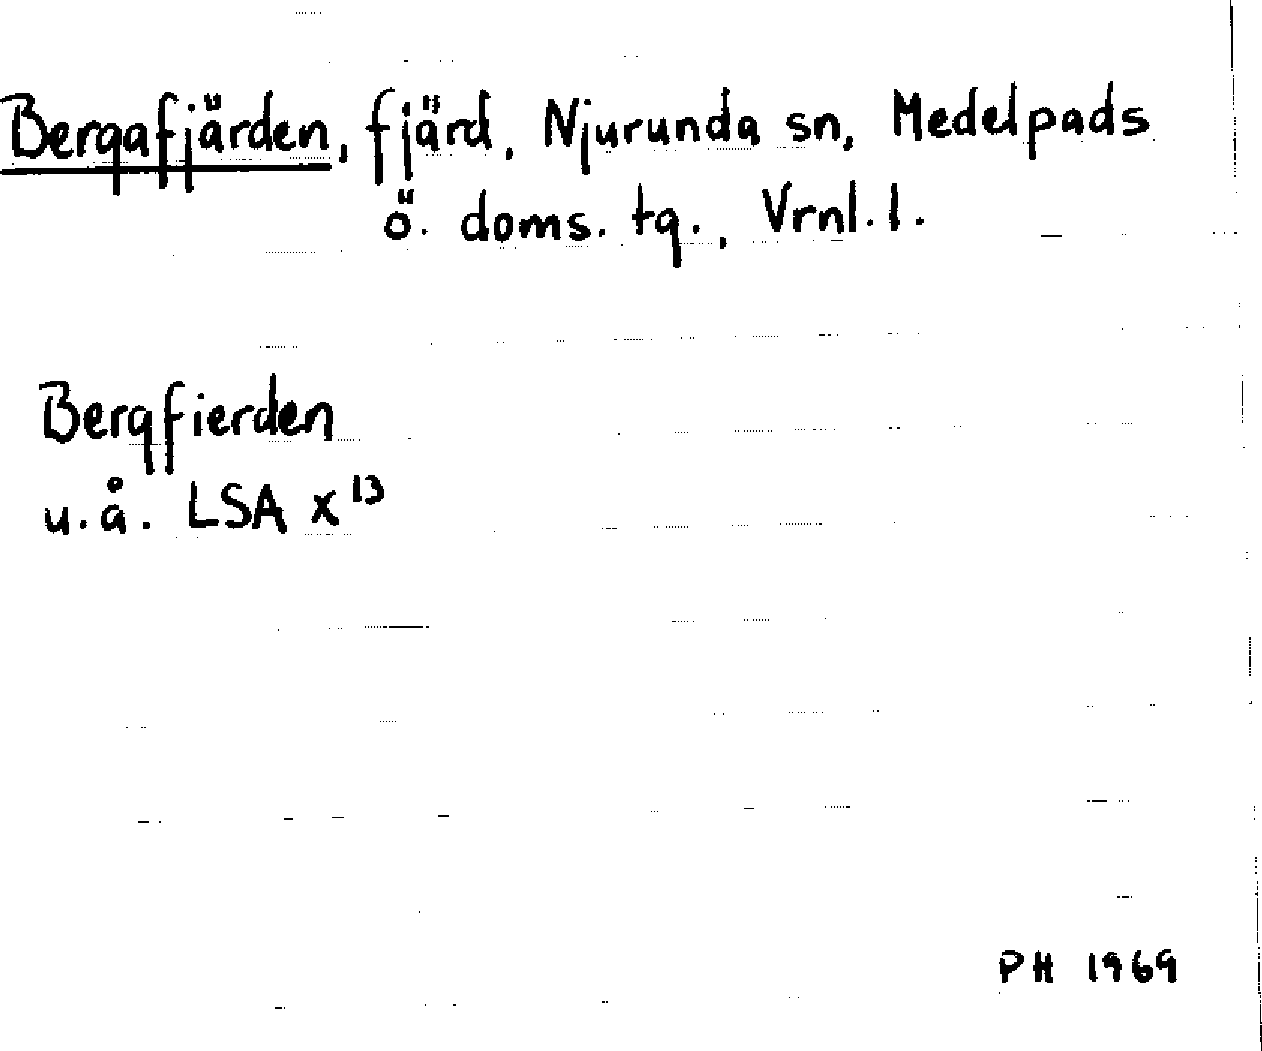 Bergafjärden, fjärd, Njurunda sn, Medelpads
ö. doms. tg., Vrnl. l.
Bergfierden
u.å. LSA X¹³
PH 1969